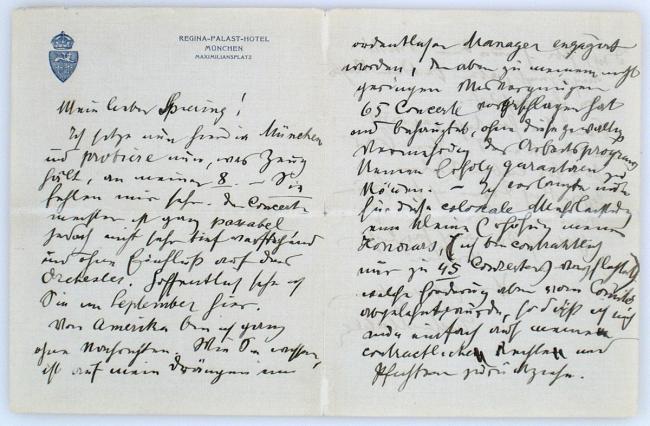 REGINA-PALAST-HOTEL
MÜNCHEN
MAXIMILIANSPLATZ
Mein lieber Spiering!
Ich sitze nun hier in München
und probiere nun, was Zeug
hält, an meiner 8. – Sie
fehlen mir sehr. Der Concert-
meister ist ganz passabel
jedoch nicht sehr tief
und ohne Einfluß auf das
Orchester. Hoffentlich sehe ich
Sie im September hier.
Von Amerika bin ich ganz
ohne Nachrichten. Wie Sie wissen,
ist auf mein Drängen ein
ordentlicher Manager engagirt
worden, der aber zu meinem nicht
geringen Misvergnügen
65 Concerte vorgeschlagen hat
und behauptet, ohne diese gewaltige
Vermehrung des Arbeitsprogramms
keinen Erfolg garantiren zu
können. – Ich verlangte nun
für diese colossale Mehrleistung
eine kleine Erhöhung meines
Honorars, (ich bin contractlich
nur zu 45 Concerten verpflichtet)
welche Forderung aber vom Comité
abgelehnt wurde, so daß ich mich
nun einfach auf meine
contractlichen Rechte und
Pflichten zurückziehe.